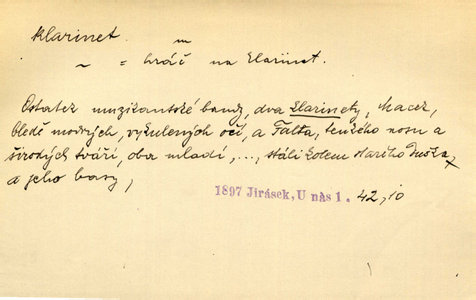 klarinet
~ = hráč na klarinet.
Ostatek muzikantské bandy, dva klarinety, Macek,
bledě modrých, vykulených očí, a Falta, tenkého nosu a
širokých tváří, oba mladí, ..., stáli kolem starého
a jeho basy,
1897 Jirásek, U nás 1. 42, 10